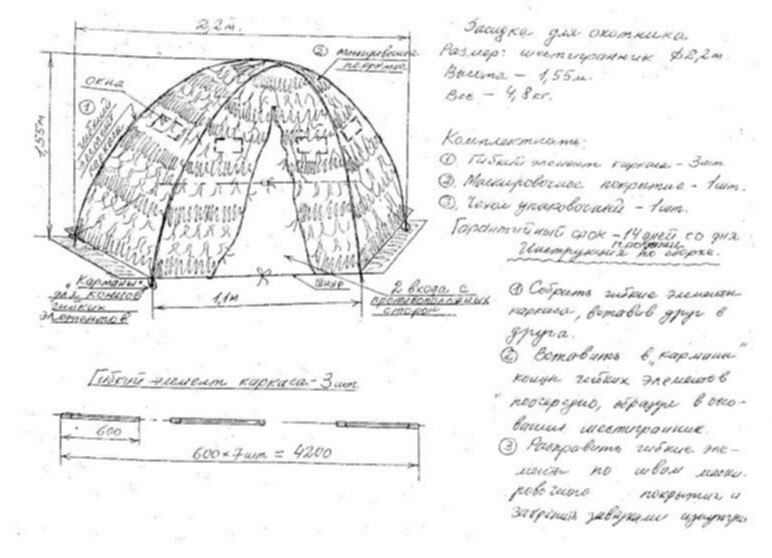 2,2 м.
② маскировочное
покрытие
окна
①
гибкий
элемент
каркаса
1,55м
Карманы
для концов
гибких
элементов
1,1м
шнур
2 входа с
противоположных
сторон
Гибкий элемент каркаса - 3 шт
600
600×7 шт = 4200
Засидка для охотника
Размер: шестигранник ф2,2м.
Высота - 1,55м.
Вес - 4,8кг.
Комплектность:
① Гибкий элемент каркаса - 3шт
② Маскировочное покрытие - 1шт.
③ Чехол упаковочный - 1шт.
Гарантийный срок - 14 дней со дня
покупки
Инструкция по сборке.
① Собрать гибкие элементы
каркаса, вставив друг в
друга.
② Вставить в „карманы"
концы гибких элементов
поочередно, образуя в осно-
вании шестигранник.
③ Расправить гибкие эле-
менты по швам маски-
ровочного покрытия и
закрепить завязками изнутри